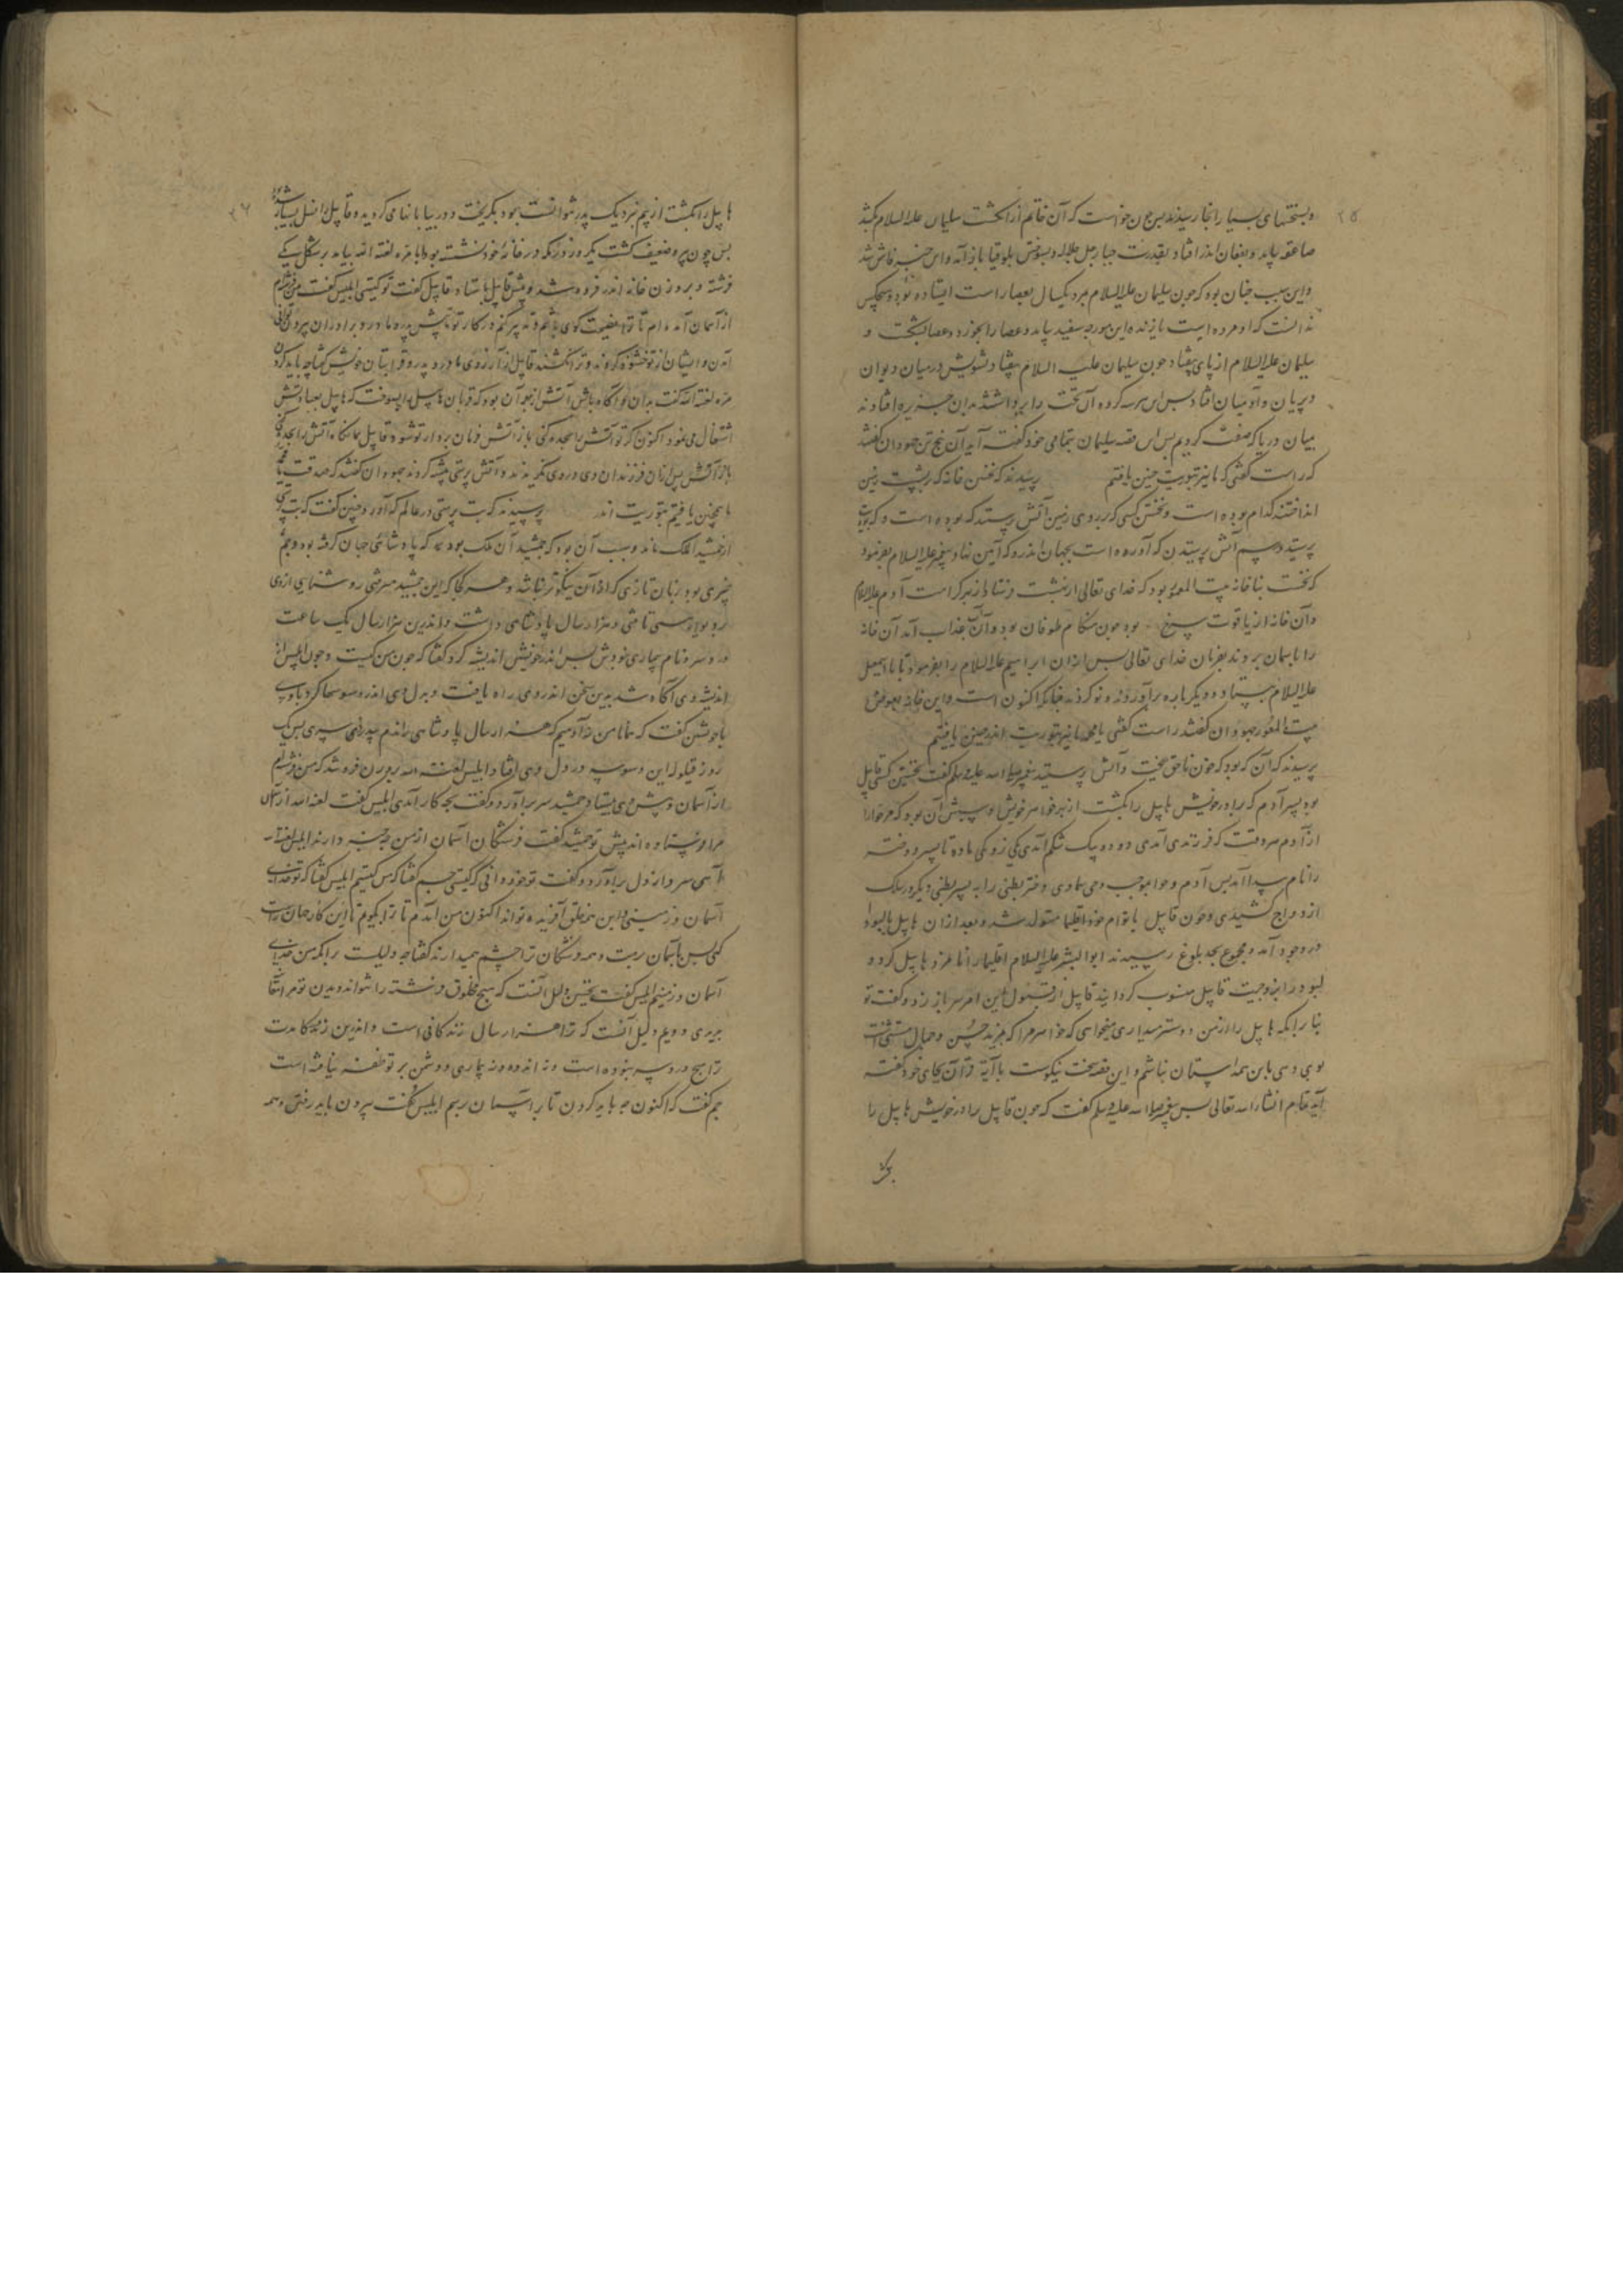 ۲۵
و بسختیهای بسیار آنجا رسیدند پس چون خواست که آن خاتم از انگشت سلیمان علیه السلام بکشد
صاعقه بیامد و بعفان اندر افتاد بقدرت جبار جل جلاله و بسوختش بلوقیا باز آمد و این خبر فاش شد
و این سبب چنان بود که چون سلیمان علیه السلام بمرد یکسال بعصا راست ایستاده بود و هیچکس
ندانست که او مرده است یا زنده این مورچه سفید بیامد و عصا را بخورد و عصا بشکست و
سلیمان علیه السلام از پای بیفتاد چون سلیمان علیه السلام بیفتاد تشویش در میان دیوان
و پریان و آدمیان افتاد پس این هر سه گروه آن تخت را برداشتند بدان جزیره افتادند
میان دریا که صفت کردیم پس این قصه سلیمان بتمامی خود گفته آید آن پنج تن جهودان گفتند
که راست گفتی که ما نیز بتوریت چنین یافتیم پرسیدند که نخستین خانه که بر پشت زمین
انداختند کدام بوده است و نخستین کسی که بر روی زمین آتش پرستید که بوده است و که بت
پرستید و رسم آتش پرستیدن که آورده است بجهان اندر و که آیین نهاد پیغمبر علیه السلام بفرمود
که نخست بنا خانه بیت المعمور بود که خدای تعالی از بهشت فرستاد از بهر کرامت آدم علیه السلام
و آن خانه از یاقوت سرخ بود چون هنگام طوفان بود و آن عذاب آمد آن خانه
را بآسمان بردند بفرمان خدای تعالی پس از آن ابراهیم علیه السلام را بفرمود تا با اسمعیل
علیه السلام بیستاد و دیگر باره برآوردند و نو کردند چنانکه اکنون است و این خانه بعوض
بیت المعمور جهودان گفتند راست گفتی یا محمد ما نیز بتوریت اندر چنین یافتیم
پرسیدند که آن که بود که خون ناحق ریخت و آتش پرستید پیغمبر صلی الله علیه وسلم گفت نخستین کسی قابیل
بود پسر آدم که برادر خویش هابیل را بکشت از بهر خواهر خویش و سببش آن بود که هر حوا را
از آدم هر وقت که فرزندی آمدی دو دو بیک شکم آمدی یکی نر و یکی ماده تا پسر و دختر
را نام پیدا آمد پس آدم و حوا بموجب وحی سماوی دختر بطنی را به پسر بطنی دیگر در سلک
ازدواج کشیدی و چون قابیل با توام خود اقلیما متولد شد و بعد از آن هابیل با لیودا
در وجود آمد و مجموع بحد بلوغ رسیدند ابوالبشر علیه السلام اقلیما را نامزد هابیل کرده
لیودا را بزوجیت قابیل منسوب گردانید قابیل از قبول این امر سر باز زد و گفت تو
بنا بر آنکه هابیل را از من دوستر میداری میخواهی که خواهر مرا که بمزید حسن و جمال مستثنی است
بوی دهی با من همداستان نباشم و این قصه سخت نیکوست با آیة قرآن بجای خود گفته
آید تمام انشاء الله تعالی پس پیغمبر صلی الله علیه وسلم گفت که چون قابیل برادر خویش هابیل را
بکشت
۲۶
هابیل را بکشت از بیم نزدیک پدر نتوانست بود بگریخت و در بیابانها می گردید و قابیل را نسل بسیار شده بود
پس چون پیر و ضعیف گشت یکروز در خانه خود نشسته بود مره لعنه الله بیامد بر شکل یکی
فرشته و بروزن خانه اندر فرو شد و پیش قابیل باستاد قابیل گفت تو کیستی ابلیس گفت من فرشته ام
از آسمان آمده ام تا ترا نصیحت گوی باشم و تدبیر کنم در کار تو تا پیش پدر و مادر و برادران بیرون توانی
آمدن و ایشان از تو خشنود گردند و ترا نکشند قابیل را آرزوی مادر و پدر و قرابتان خویش گفتا چه باید کرد
مره لعنه الله گفت بدان و آگاه باش آتش از بهر آن بود که قربان هابیل را بسوخت که هابیل بعبادتش
اشتغال می نمود اکنون گر تو آتش را سجده کنی باز آتش فرمان بردار تو شود قابیل همانگاه آتش را سجده کرد
باز آتش پس از آن فرزندان وی در وی نگریدند و آتش پرستی پیشه کردند جهودان گفتند که صدقت یا محمد
ما همچنین یافتیم بتوریت اندر پرسیدند که بت پرستی در عالم که آورد چنین گفت که بت پرستی
از جمشید الملک ماند و سبب آن بود که جمشید آن ملک بود که پادشاهی جهان گرفته بود و بعجم
چیزی بود بزبان تازی که از آن نیکوتر نباشد و هر کجا که این جمشید می رفتی روشنایی از وی
و بود و هستی تا هزار سال پادشاهی داشت و اندرین هزار سال یک ساعت
درد سر و نام بیماری نبودش پس اندر خویشتن اندیشه کرد گفتا که چون من کیست و چون ابلیس از
اندیشه وی آگاه شد بدین سخن اندر وی راه یافت و بدل وی اندر وسوسها کرد تا وی
با خویشتن گفت که همانا من نه آدمیم که هزار سال پادشاهی راندم بیدردسری پس یک
روز قیلوله این وسوسه در دل وی افتاد ابلیس لعنه الله بروزن فرو شد که من فرشته ام
از آسمان و پیش وی بیستاد جمشید سر برآورد و گفت بچه کار آمدی ابلیس گفت لعنه الله از آسمان
مرا فرستاده اند پیش تو جمشید گفت فرشتگان آسمان از من چه خبر دارند ابلیس لعنه الله
آهی سرد از دل برآورد و گفت تو خود دانی که کیستی جم گفتا که من کیستم ابلیس گفتا که تو خدای
آسمان و زمینی و این همه خلق آفریده تواند اکنون من آمدم تا ترا بگویم تا این کار جهان راست
کنی پس بآسمان بریت و همه فرشتگان ترا چشم میدارند گفتا چه دلیلست بر آنکه من خدای
آسمان و زمینم ابلیس گفت نخستین دلیل آنست که هیچ مخلوق فرشته را نتواند دیدن تو مرا آشکارا
می بینی و دویم دلیل آنست که ترا هزار سال زندگانی است و اندرین زندگانی مدت
ترا هیچ درد سر نبوده است و نه اندوه و نه بیماری و دشمن بر تو ظفر نیافته است
جم گفت که اکنون چه باید کردن تا بر آسمان رسم ابلیس گفت بیرون باید رفتی و همه